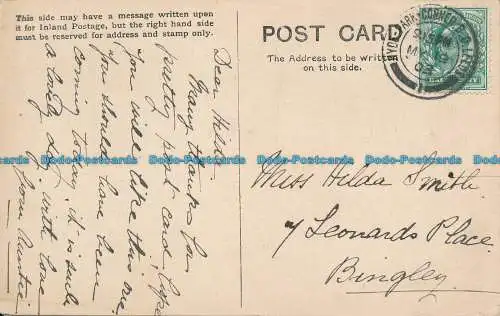 This side may have a message written upon
it for Inland Postage, but the right hand side
must be reserved for address and stamp only.
POST CARD
The Address to be written
on this side.
HYDE PARK CORNER LEEDS
Dear Hilda
Many thanks for
pretty post card. I hope
you will like this one.
You should have been
coming today, it is such
a lovely day, with love
from Auntie
Miss Hilda Smith
7 Leonards Place
Bingley
Dodo-Postcards Dodo-Postcards Dodo-Postcards Dodo-Postcards Dodo-Postcards